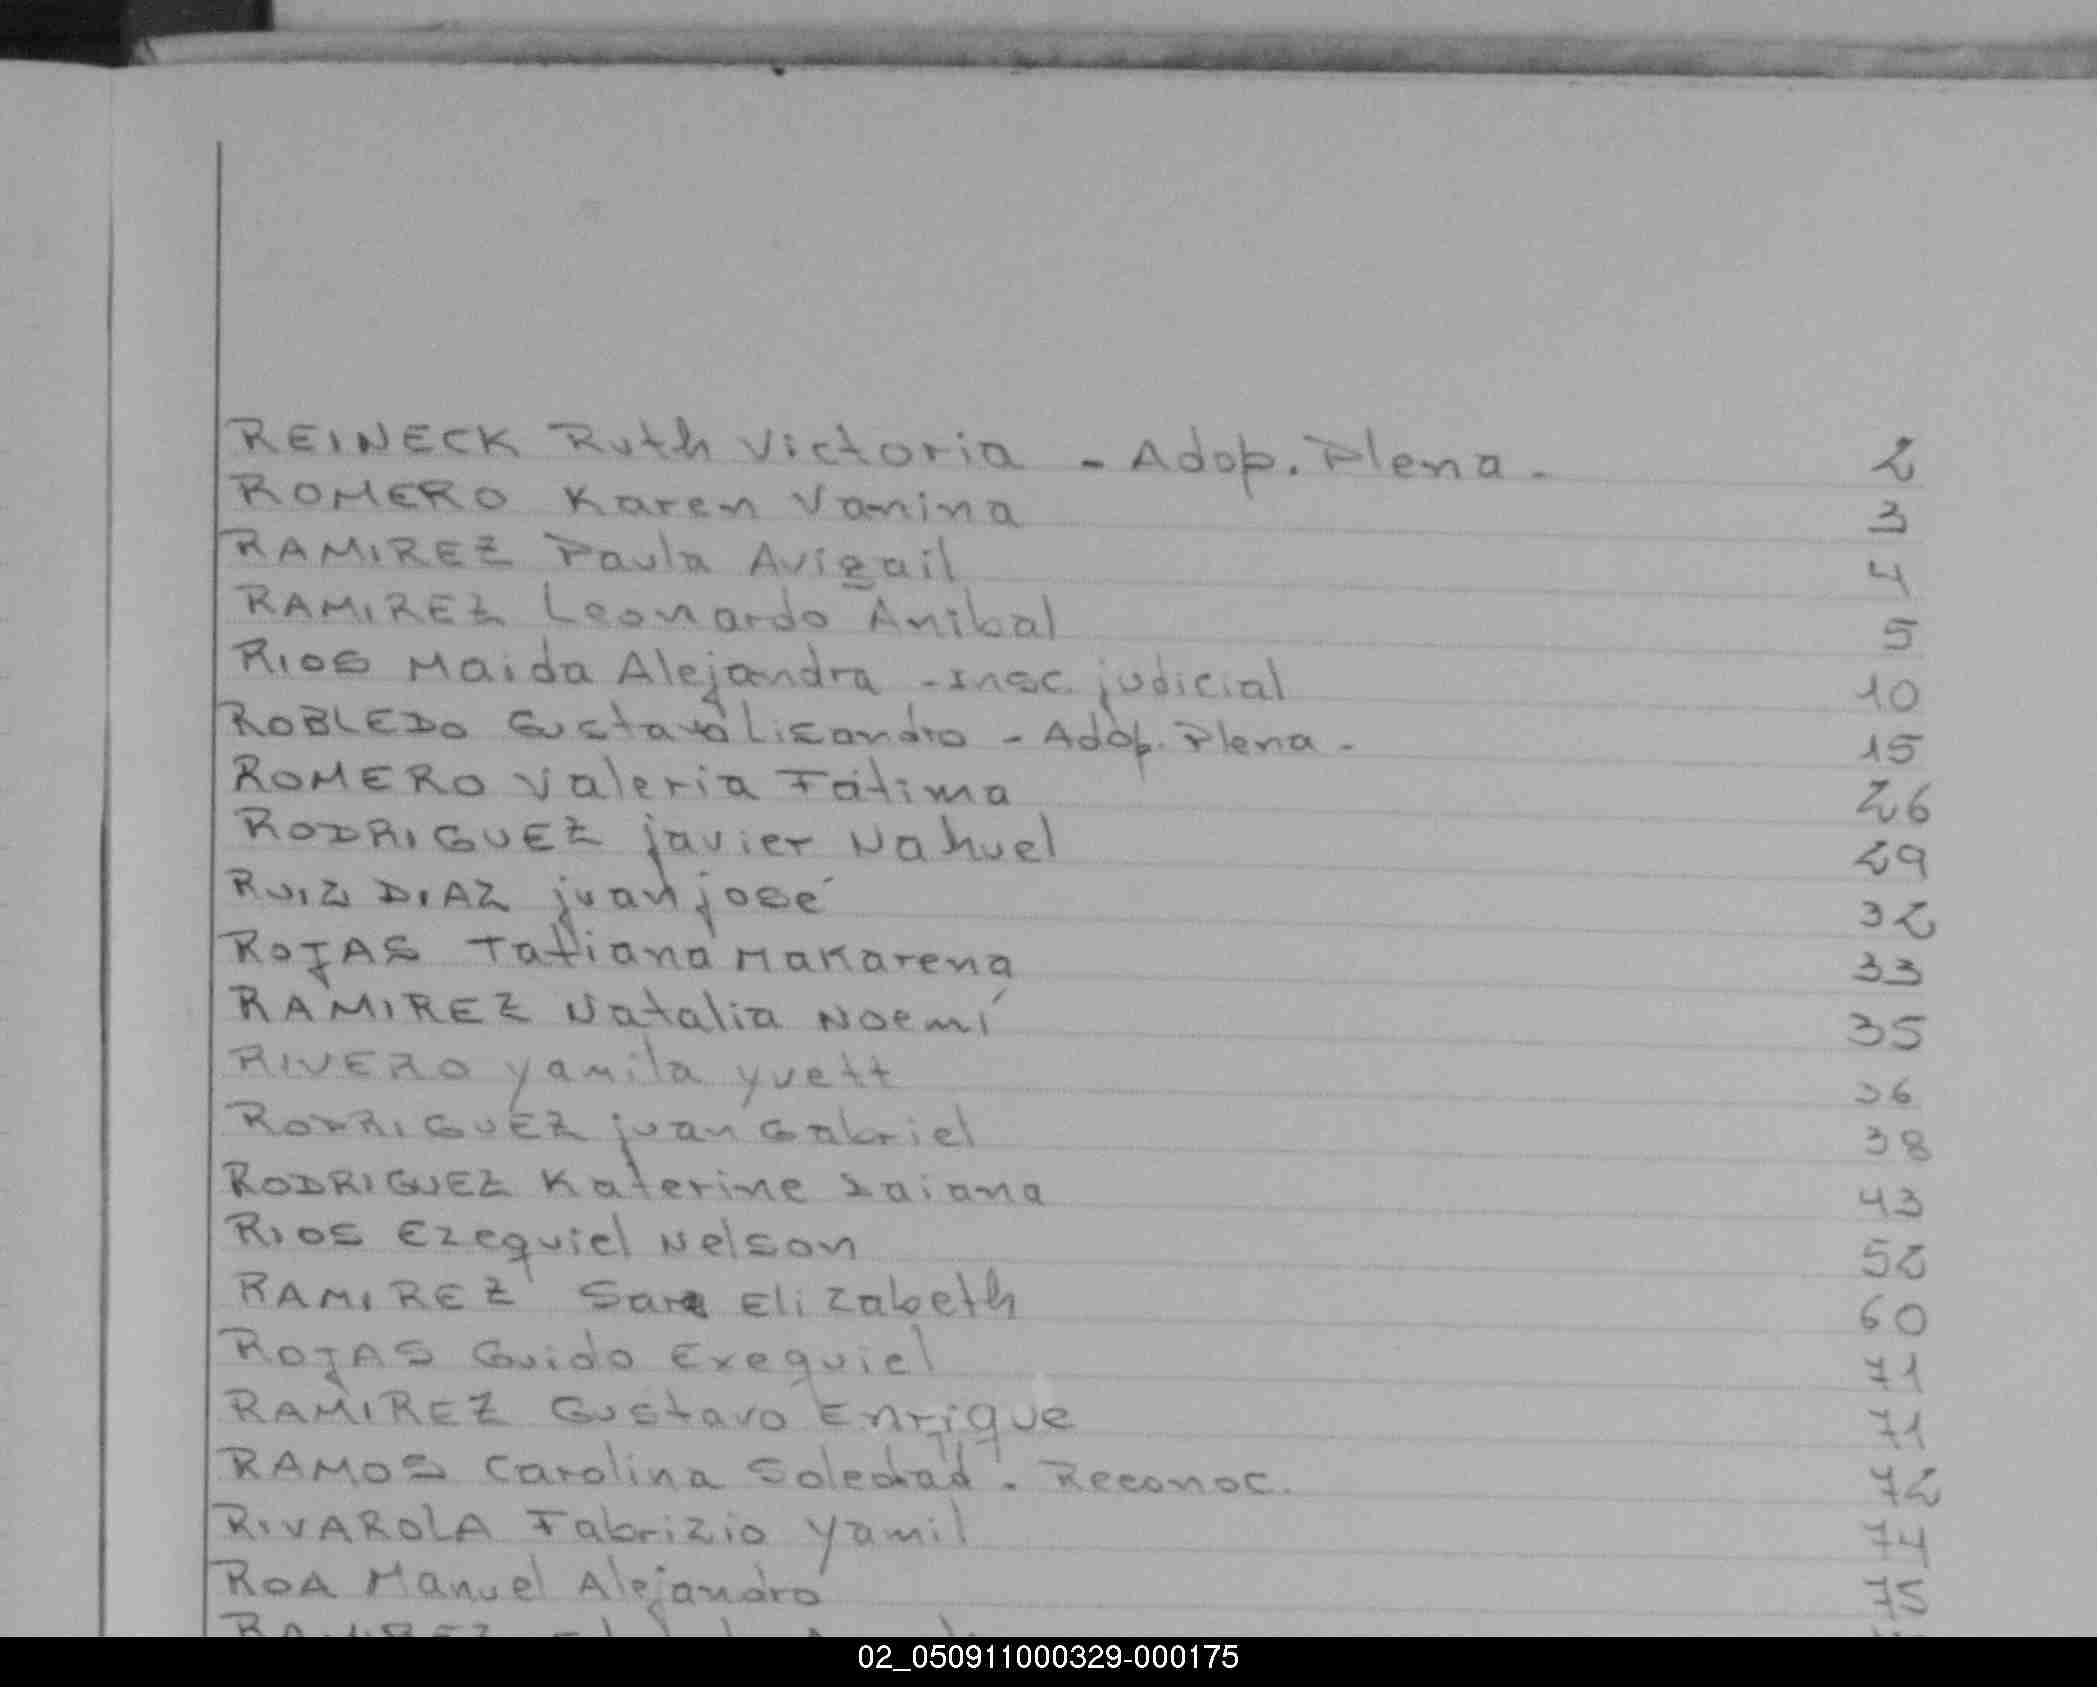 REINECK Ruth Victoria - Adop. Plena - 2
ROMERO Karen Vanina 3
RAMIREZ Paula Avigail 4
RAMIREZ Leonardo Anibal 5
RIOS Maida Alejandra - Insc. judicial 10
ROBLEDO Gustavo Lisandro - Adop. Plena - 15
ROMERO Valeria Fátima 26
RODRIGUEZ javier Nahuel 29
RUIZ DIAZ juan josé 32
ROJAS Tatiana Makarena 33
RAMIREZ Natalia Noemí 35
RIVERO yamila yvett 36
RODRIGUEZ juan Gabriel 38
RODRIGUEZ Katerine Daiana 43
RIOS Ezequiel Nelson 52
RAMIREZ Sara Elizabeth 60
ROJAS Guido Exequiel 71
RAMIREZ Gustavo Enrique 71
RAMOS Carolina Soledad. Reconoc. 72
RIVAROLA Fabrizio Yamil 74
ROA Manuel Alejandro 75
RAMIREZ
02_050911000329-000175